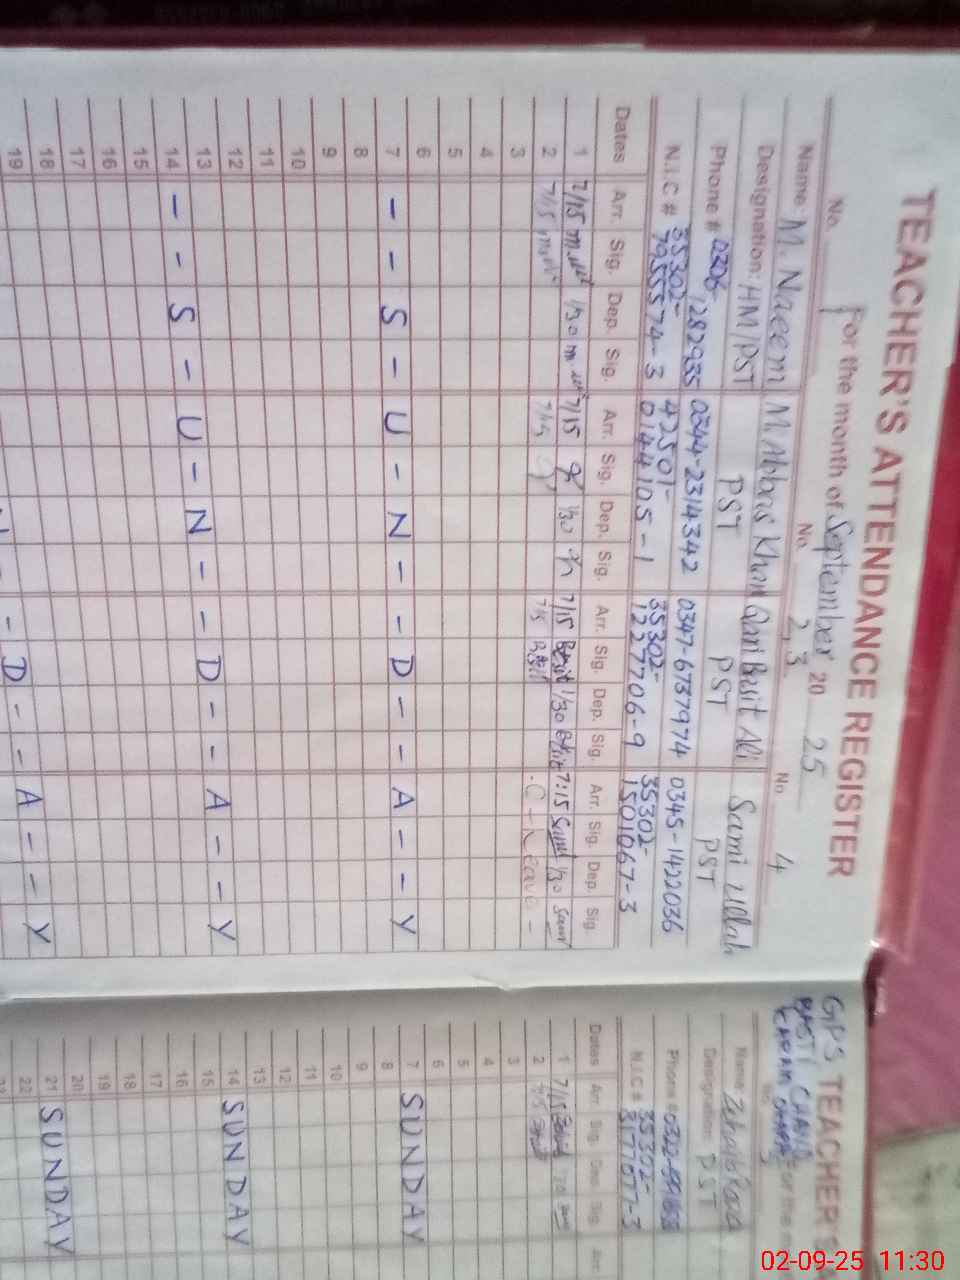 TEACHER'S ATTENDANCE REGISTER
For the month of September 20 25
No. No. 2, 3 No. 4
Name: M. Naeem M Abbas Khan Qari Basit Ali Sami Ullah
Designation: HM/PST PST PST PST
Phone # 0306-1282935 0344-2314342 0347-6737974 0345-1422036
N.I.C # 35302- 42501- 35302- 35302-
7955574-3 0144105-1 1227706-9 1501067-3
Dates Arr. Sig. Dep. Sig. Arr. Sig. Dep. Sig. Arr. Sig. Dep. Sig. Arr. Sig. Dep. Sig.
1 7/15 1/30 7/15 1/30 7/15 Basit 1/30 Basit 7:15 Sami 1/30 Sami
2 7/15 7/15 7/15 Basit C - Leave -
3
4
5
6
7 - - S - U - N - - D - - A - - Y
8
9
10
11
12
13
14 - - S - U - N - - D - - A - - Y
15
16
17
18
19
D - - A - - Y
GPS TEACHER'S
BASTI CHAH
For the m
Name:
Designation: PST
Phone # 0322-
N.I.C # 35302-
3177077-3
Dates Arr. Sig. Dep. Sig. Arr.
1 7/15
2 7/15
3
4
5
6
7 SUNDAY
8
9
10
11
12
13
14 SUNDAY
15
16
17
18
19
20
21 SUNDAY
22
02-09-25 11:30